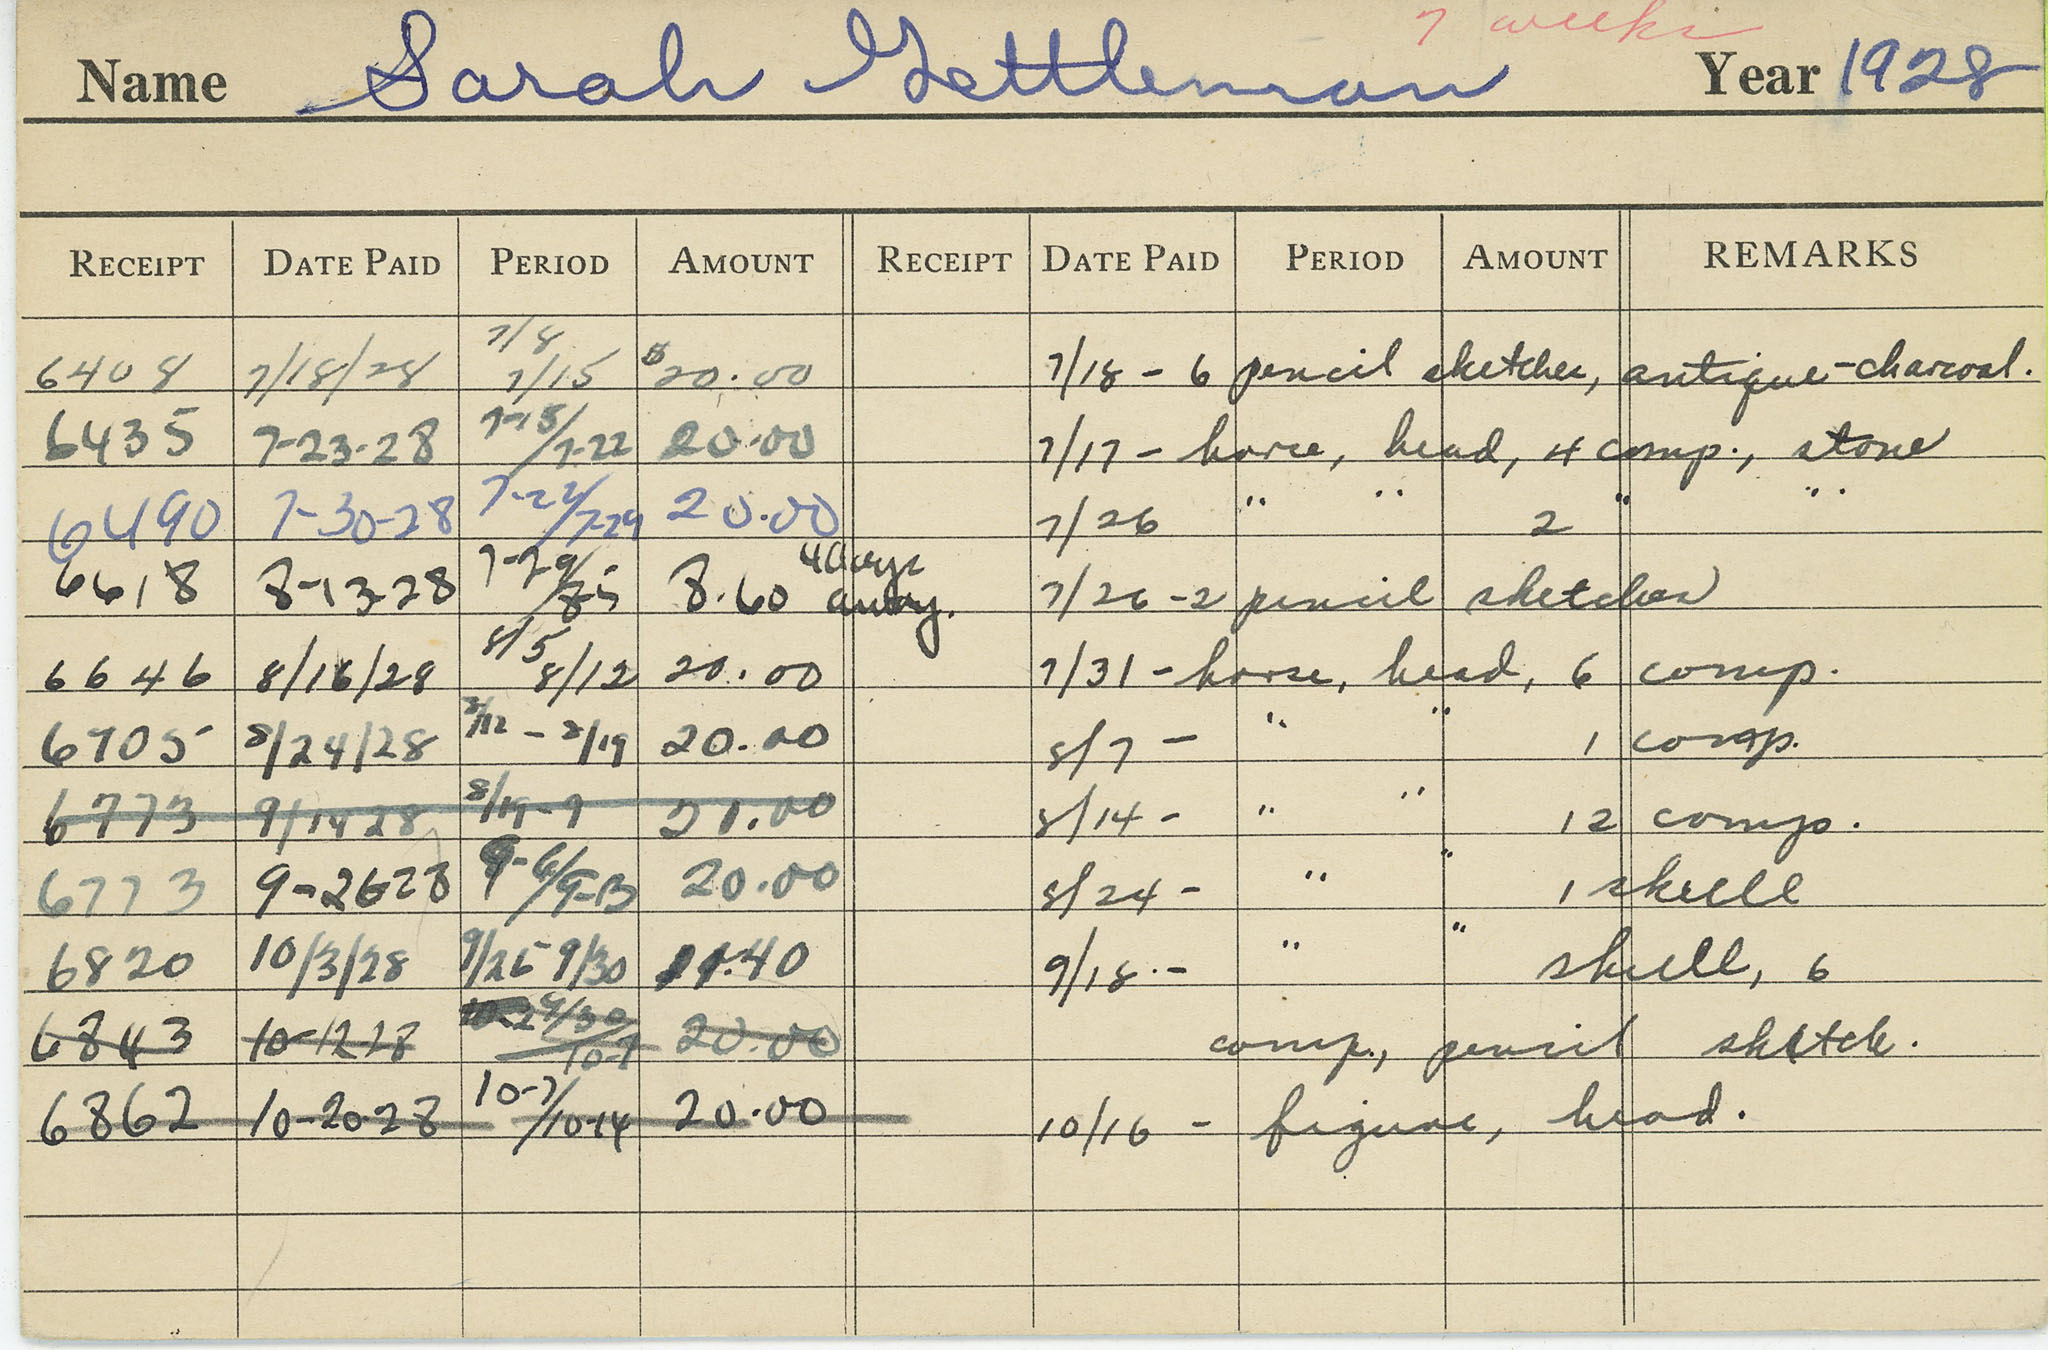 7 weeks
Name Sarah Gettleman Year 1928
RECEIPT DATE PAID PERIOD AMOUNT RECEIPT DATE PAID PERIOD AMOUNT REMARKS
6408 7/18/28 7/8 7/15 $20.00 7/18 - 6 pencil sketches, antique-charcoal.
6435 7-23-28 7-15/7-22 20.00 7/17 - horse, head, 4 comp., stone
6490 7-30-28 7-22/7-29 20.00 7/26 " " 2 " "
6618 8-13-28 7-29/8-5 8.60 4 days away. 7/26 - 2 pencil sketches
6646 8/16/28 8/5 8/12 20.00 7/31 - horse, head, 6 comp.
6705 8/24/28 8/12 - 8/19 20.00 8/7 - " " 1 comp.
6773 9/14 28 8/19 - 9 21.00 8/14 - " " 12 comp.
6773 9-26-28 9-6/9-13 20.00 8/24 - " " 1 skull
6820 10/3/28 9/25 9/30 11.40 9/18 - " " skull, 6
6843 10-12 28 9/30 10-7 20.00 comp., pencil sketch.
6862 10-20-28 10-7/10-14 20.00 10/16 - figure, head.